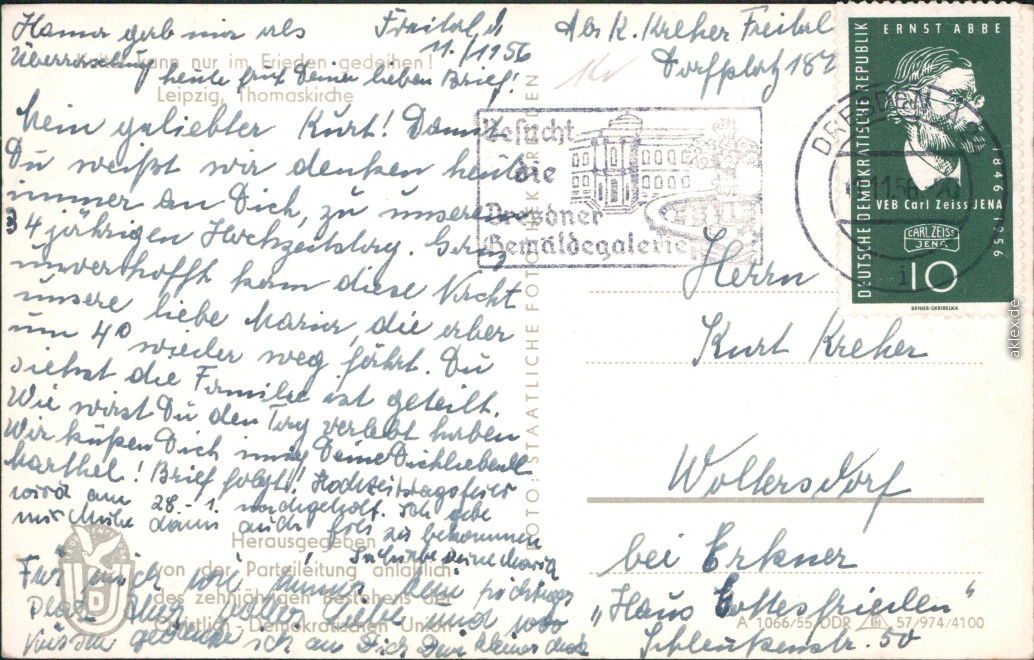 Hanna gab mir als
Überraschung
heute früh Deinen lieben Brief!
Freital, d.
11./1 1956
Kultur kann nur im Frieden gedeihen!
Leipzig, Thomaskirche
Mein geliebter Kurt! Damit
Du weißt wir denken heute
immer an Dich, zu unserem
34 jährigen Hochzeitstag. Ganz
unverhofft kam diese Nacht
unsere liebe Maria, die aber
um 4° wieder weg fährt. Du
siehst die Familie ist geteilt.
Wie wirst Du den Tag verlebt haben
Wir küßen Dich innig Deine Dichliebende
Marthel! Brief folgt! Hochzeitstagsfeier
wird am 28. 1. nachgeholt. Ich gebe
mir Mühe dann auch frei zu bekommen
In Liebe Deine Maria
Für mich wie immer kein richtiger
Platz
und
gedenke ich an Dich Dein kleiner
Herausgegeben
von der Parteileitung anläßlich
des zehnjährigen Bestehens der
Christlich-Demokratischen Union
FOTO: STAATLICHE FOTOTHEK DRESDEN
Abs. K. Kreher Freital
Dorfplatz 18
Besucht
die
Dresdner
Gemäldegalerie
DRESDEN
11.56
DEUTSCHE DEMOKRATISCHE REPUBLIK
ERNST ABBE
1846 1956
VEB Carl Zeiss JENA
CARL ZEISS
JENA
10
BENGS-SKRIBELKA
Herrn
Kurt Kreher
Woltersdorf
bei Erkner
„Haus Gottesfrieden"
Schleusenstr. 50
A 1066/55/DDR 57/974/4100
aklex.de